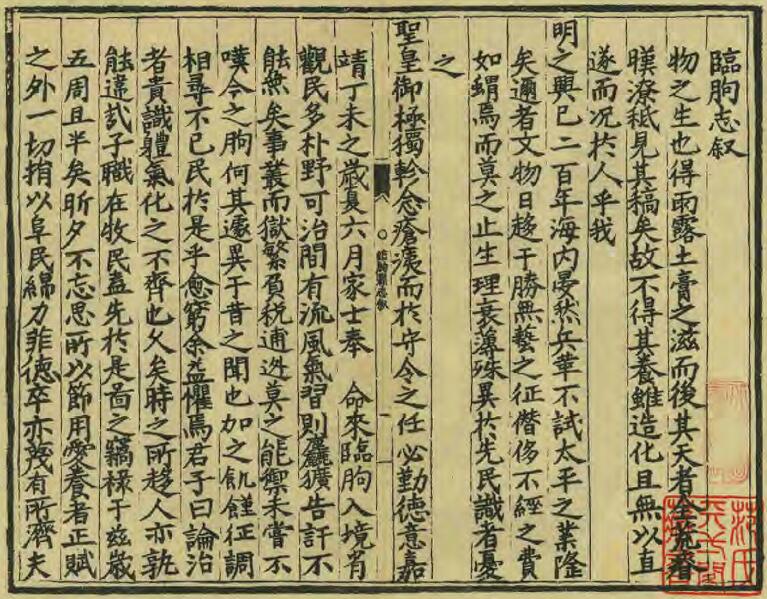 臨朐志叙
物之生也得雨露土膏之滋而後其天者全疏
暵潦秪見其稿矣故不得其養雖造化且無以直
遂而况扵人乎我
明之興已二百年海内晏然兵革不試太平之業隆
矣邇者文物日趍于勝無藝之征僭侈不經之費
如蝟焉而莫之止生理衰薄殊異扵先民識者憂
之
聖皇御極獨軫念瘡痍而扵守令之任必勤德意嘉
臨朐縣志叙 一
靖丁未之歲夏六月家士奉 命來臨朐入境省
觀民多朴野可治間有流風氣習則麤獷告訐不
能無矣事叢而獄繁負税逋逃莫之能禦未嘗不
嘆今之朐何其遽異于昔之聞也加之飢饉征調
相尋不已民扵是乎愈窮余益懼焉君子曰論治
者貴識體氣化之不齊也久矣時之所趍人亦孰
能違㢤子職在牧民盍先扵是啚之竊禄于兹歲
五周且半矣昕夕不忘思所以節用愛養者正賦
之外一切捐以阜民綿力菲德卒亦蔑有所濟夫